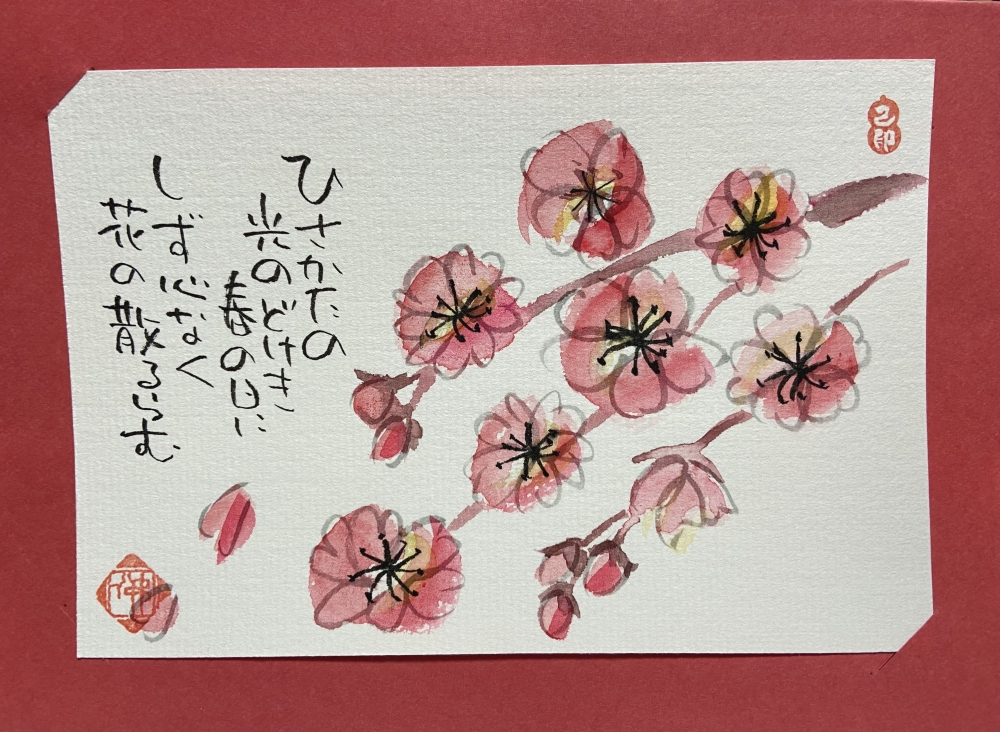 ひさかたの
光のどけき
春の日に
しず心なく
花の散るらむ